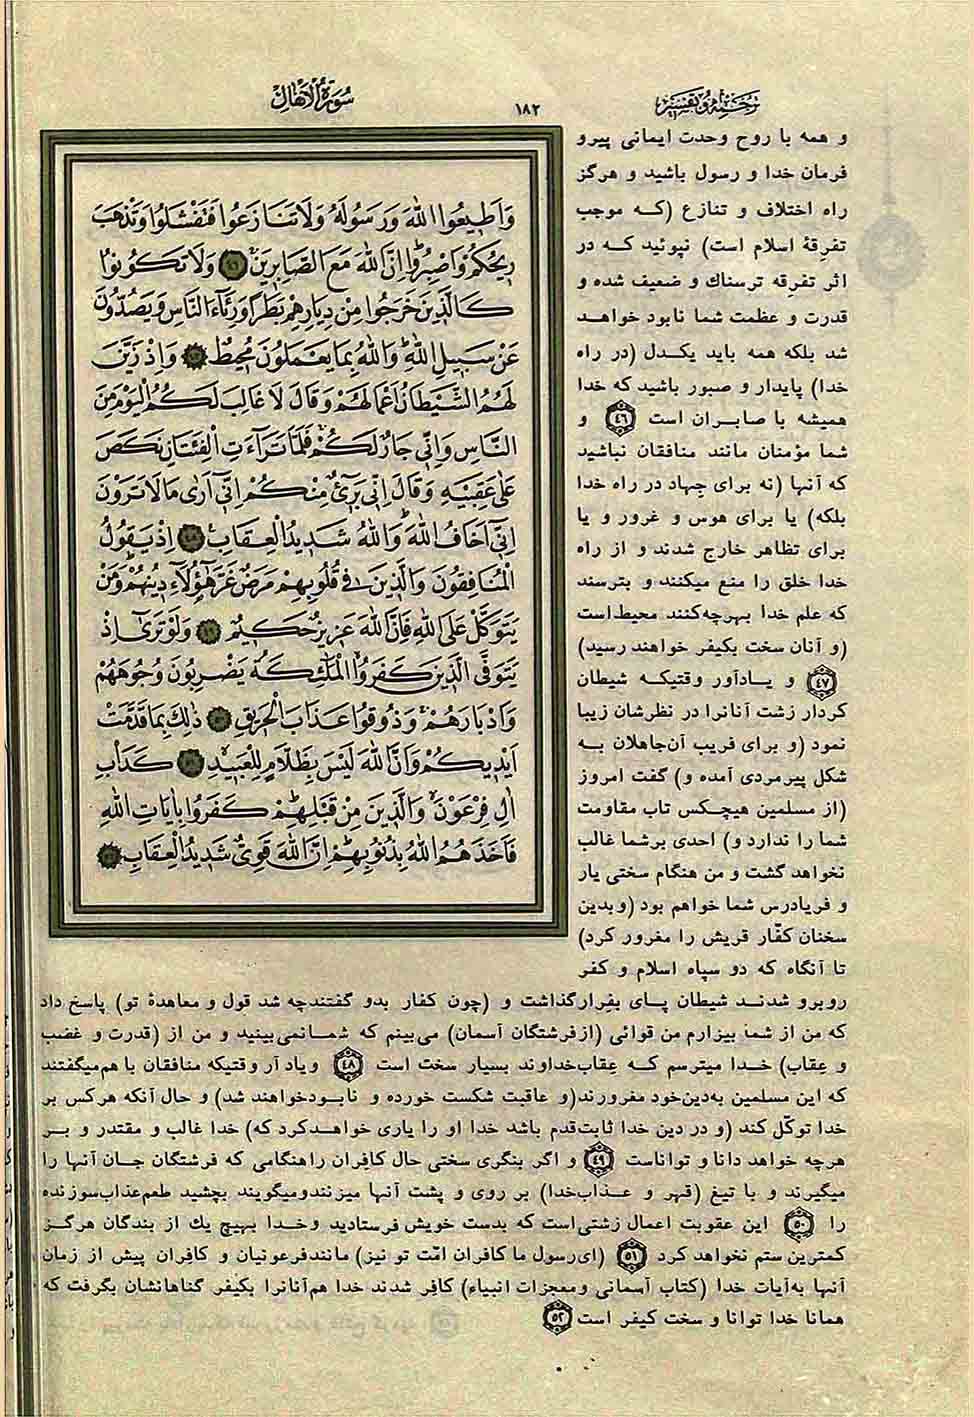 ترجمه و تفسیر
۱۸۲
سورة الانفال
وَاَطیعُوا اللّٰهَ وَرَسُولَهُ وَلَا تَنَازَعُوا فَتَفْشَلُوا وَتَذْهَبَ
رِیحُكُمْ وَاصْبِرُوا اِنَّ اللّٰهَ مَعَ الصَّابِرینَ ۴۶ وَلَا تَكُونُوا
كَالَّذینَ خَرَجُوا مِنْ دِیَارِهِمْ بَطَرًا وَرِئَآءَ النَّاسِ وَیَصُدُّونَ
عَنْ سَبیلِ اللّٰهِ وَاللّٰهُ بِمَا یَعْمَلُونَ مُحیطٌ ۴۷ وَاِذْ زَیَّنَ
لَهُمُ الشَّیْطَانُ اَعْمَالَهُمْ وَقَالَ لَا غَالِبَ لَكُمُ الْیَوْمَ مِنَ
النَّاسِ وَاِنّی جَارٌ لَكُمْ فَلَمَّا تَرَآءَتِ الْفِئَتَانِ نَكَصَ
عَلٰی عَقِبَیْهِ وَقَالَ اِنّی بَرَیٓءٌ مِنْكُمْ اِنّیٓ اَرٰی مَا لَا تَرَوْنَ
اِنّیٓ اَخَافُ اللّٰهَ وَاللّٰهُ شَدیدُ الْعِقَابِ ۴۸ اِذْ یَقُولُ
الْمُنَافِقُونَ وَالَّذینَ فی قُلُوبِهِمْ مَرَضٌ غَرَّ هٰٓؤُلَآءِ دینُهُمْ وَمَنْ
یَتَوَكَّلْ عَلَی اللّٰهِ فَاِنَّ اللّٰهَ عَزیزٌ حَكیمٌ ۴۹ وَلَوْ تَرٰٓی اِذْ
یَتَوَفَّی الَّذینَ كَفَرُوا الْمَلٰٓئِكَةُ یَضْرِبُونَ وُجُوهَهُمْ
وَاَدْبَارَهُمْ وَذُوقُوا عَذَابَ الْحَریقِ ۵۰ ذٰلِكَ بِمَا قَدَّمَتْ
اَیْدیكُمْ وَاَنَّ اللّٰهَ لَیْسَ بِظَلَّامٍ لِلْعَبیدِ ۵۱ كَدَاْبِ
اٰلِ فِرْعَوْنَ وَالَّذینَ مِنْ قَبْلِهِمْ كَفَرُوا بِاٰیَاتِ اللّٰهِ
فَاَخَذَهُمُ اللّٰهُ بِذُنُوبِهِمْ اِنَّ اللّٰهَ قَوِیٌّ شَدیدُ الْعِقَابِ ۵۲
و همه با روح وحدت ایمانی پیرو
فرمان خدا و رسول باشید و هرگز
راه اختلاف و تنازع (که موجب
تفرقهٔ اسلام است) نپوئید که در
اثر تفرقه ترسناك و ضعیف شده و
قدرت و عظمت شما نابود خواهد
شد بلکه همه باید یکدل (در راه
خدا) پایدار و صبور باشید که خدا
همیشه با صابران است ۴۶ و
شما مؤمنان مانند منافقان نباشید
که آنها (نه برای جهاد در راه خدا
بلکه) یا برای هوس و غرور و یا
برای تظاهر خارج شدند و از راه
خدا خلق را منع میکنند و بترسند
که علم خدا بهرچه‌کنند محیط‌است
(و آنان سخت بکیفر خواهند رسید)
۴۷ و یادآور وقتیکه شیطان
کردار زشت آنانرا در نظرشان زیبا
نمود (و برای فریب آن‌جاهلان به
شکل پیرمردی آمده و) گفت امروز
(از مسلمین هیچکس تاب مقاومت
شما را ندارد و) احدی برشما غالب
نخواهد گشت و من هنگام سختی یار
و فریادرس شما خواهم بود (وبدین
سخنان کفّار قریش را مغرور کرد)
تا آنگاه که دو سپاه اسلام و کفر
روبرو شدند شیطان پای بفرارگذاشت و (چون کفار بدو گفتندچه شد قول و معاهدهٔ تو) پاسخ داد
که من از شما بیزارم من قوائی (ازفرشتگان آسمان) می‌بینم که شمانمی‌بینید و من از (قدرت و غضب
و عِقاب) خدا میترسم که عِقاب‌خداوند بسیار سخت است ۴۸ ویاد آر وقتیکه منافقان با هم‌میگفتند
که این مسلمین به‌دین‌خود مغرورند(و عاقبت شکست خورده و نابودخواهند شد) و حال آنکه هرکس بر
خدا توکّل کند (و در دین خدا ثابت‌قدم باشد خدا او را یاری خواهدکرد که) خدا غالب و مقتدر و بر
هرچه خواهد دانا و تواناست ۴۹ و اگر بنگری سختی حال کافِران راهنگامی که فرشتگان جان آنها را
میگیرند و با تیغ (قهر و عذاب‌خدا) بر روی و پشت آنها میزنندومیگویند بچشید طعم‌عذاب‌سوزنده
را ۵۰ این عقوبت اعمال زشتی‌است که بدست خویش فرستادید وخدا بهیچ یك از بندگان هرگز
کمترین ستم نخواهد کرد ۵۱ (ای‌رسول ما کافران امّت تو نیز) مانندفرعونیان و کافِران پیش از زمان
آنها به‌آیات خدا (کتاب آسمانی ومعجزات انبیاء) کافِر شدند خدا هم‌آنانرا بکیفر گناهانشان بگرفت که
همانا خدا توانا و سخت کیفر است ۵۲